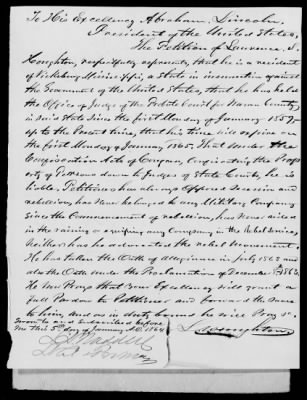 To His Excellency Abraham Lincoln,
President of the United States,
The Petition of Lawrence S.
Houghton, respectfully represents, that he is a resident
of Vicksburg Mississippi, a State in insurrection against
the Government of the United States, that he has held
the Office of Judge of the Probate Court for Warren County,
in said State since the first Monday of January 1857,
up to the present time, that his time will expire on
the first Monday of January 1865. That under the
Confiscation Acts of Congress, confiscating the Prop
erty of Persons down to Judges of State Courts, he is
liable. Petitioner has always opposed secession and
rebellion, has never belonged to any Military Company
since the Commencement of rebellion, has never aided
in the raising or equiping any Company in the Rebel Service,
Neither has he advocated the rebel movement.
He has taken the Oath of allegiance in July 1863 and
also the Oath under the Proclamation of December 1863.
He now Prays that your Excellency will grant a
full Pardon to Petitioner and forward the same
to him, and as in duty bound he will Pray &c.
Sworn to and subscribed before
me this 5th day of January A.D. 1864
L. S. Houghton